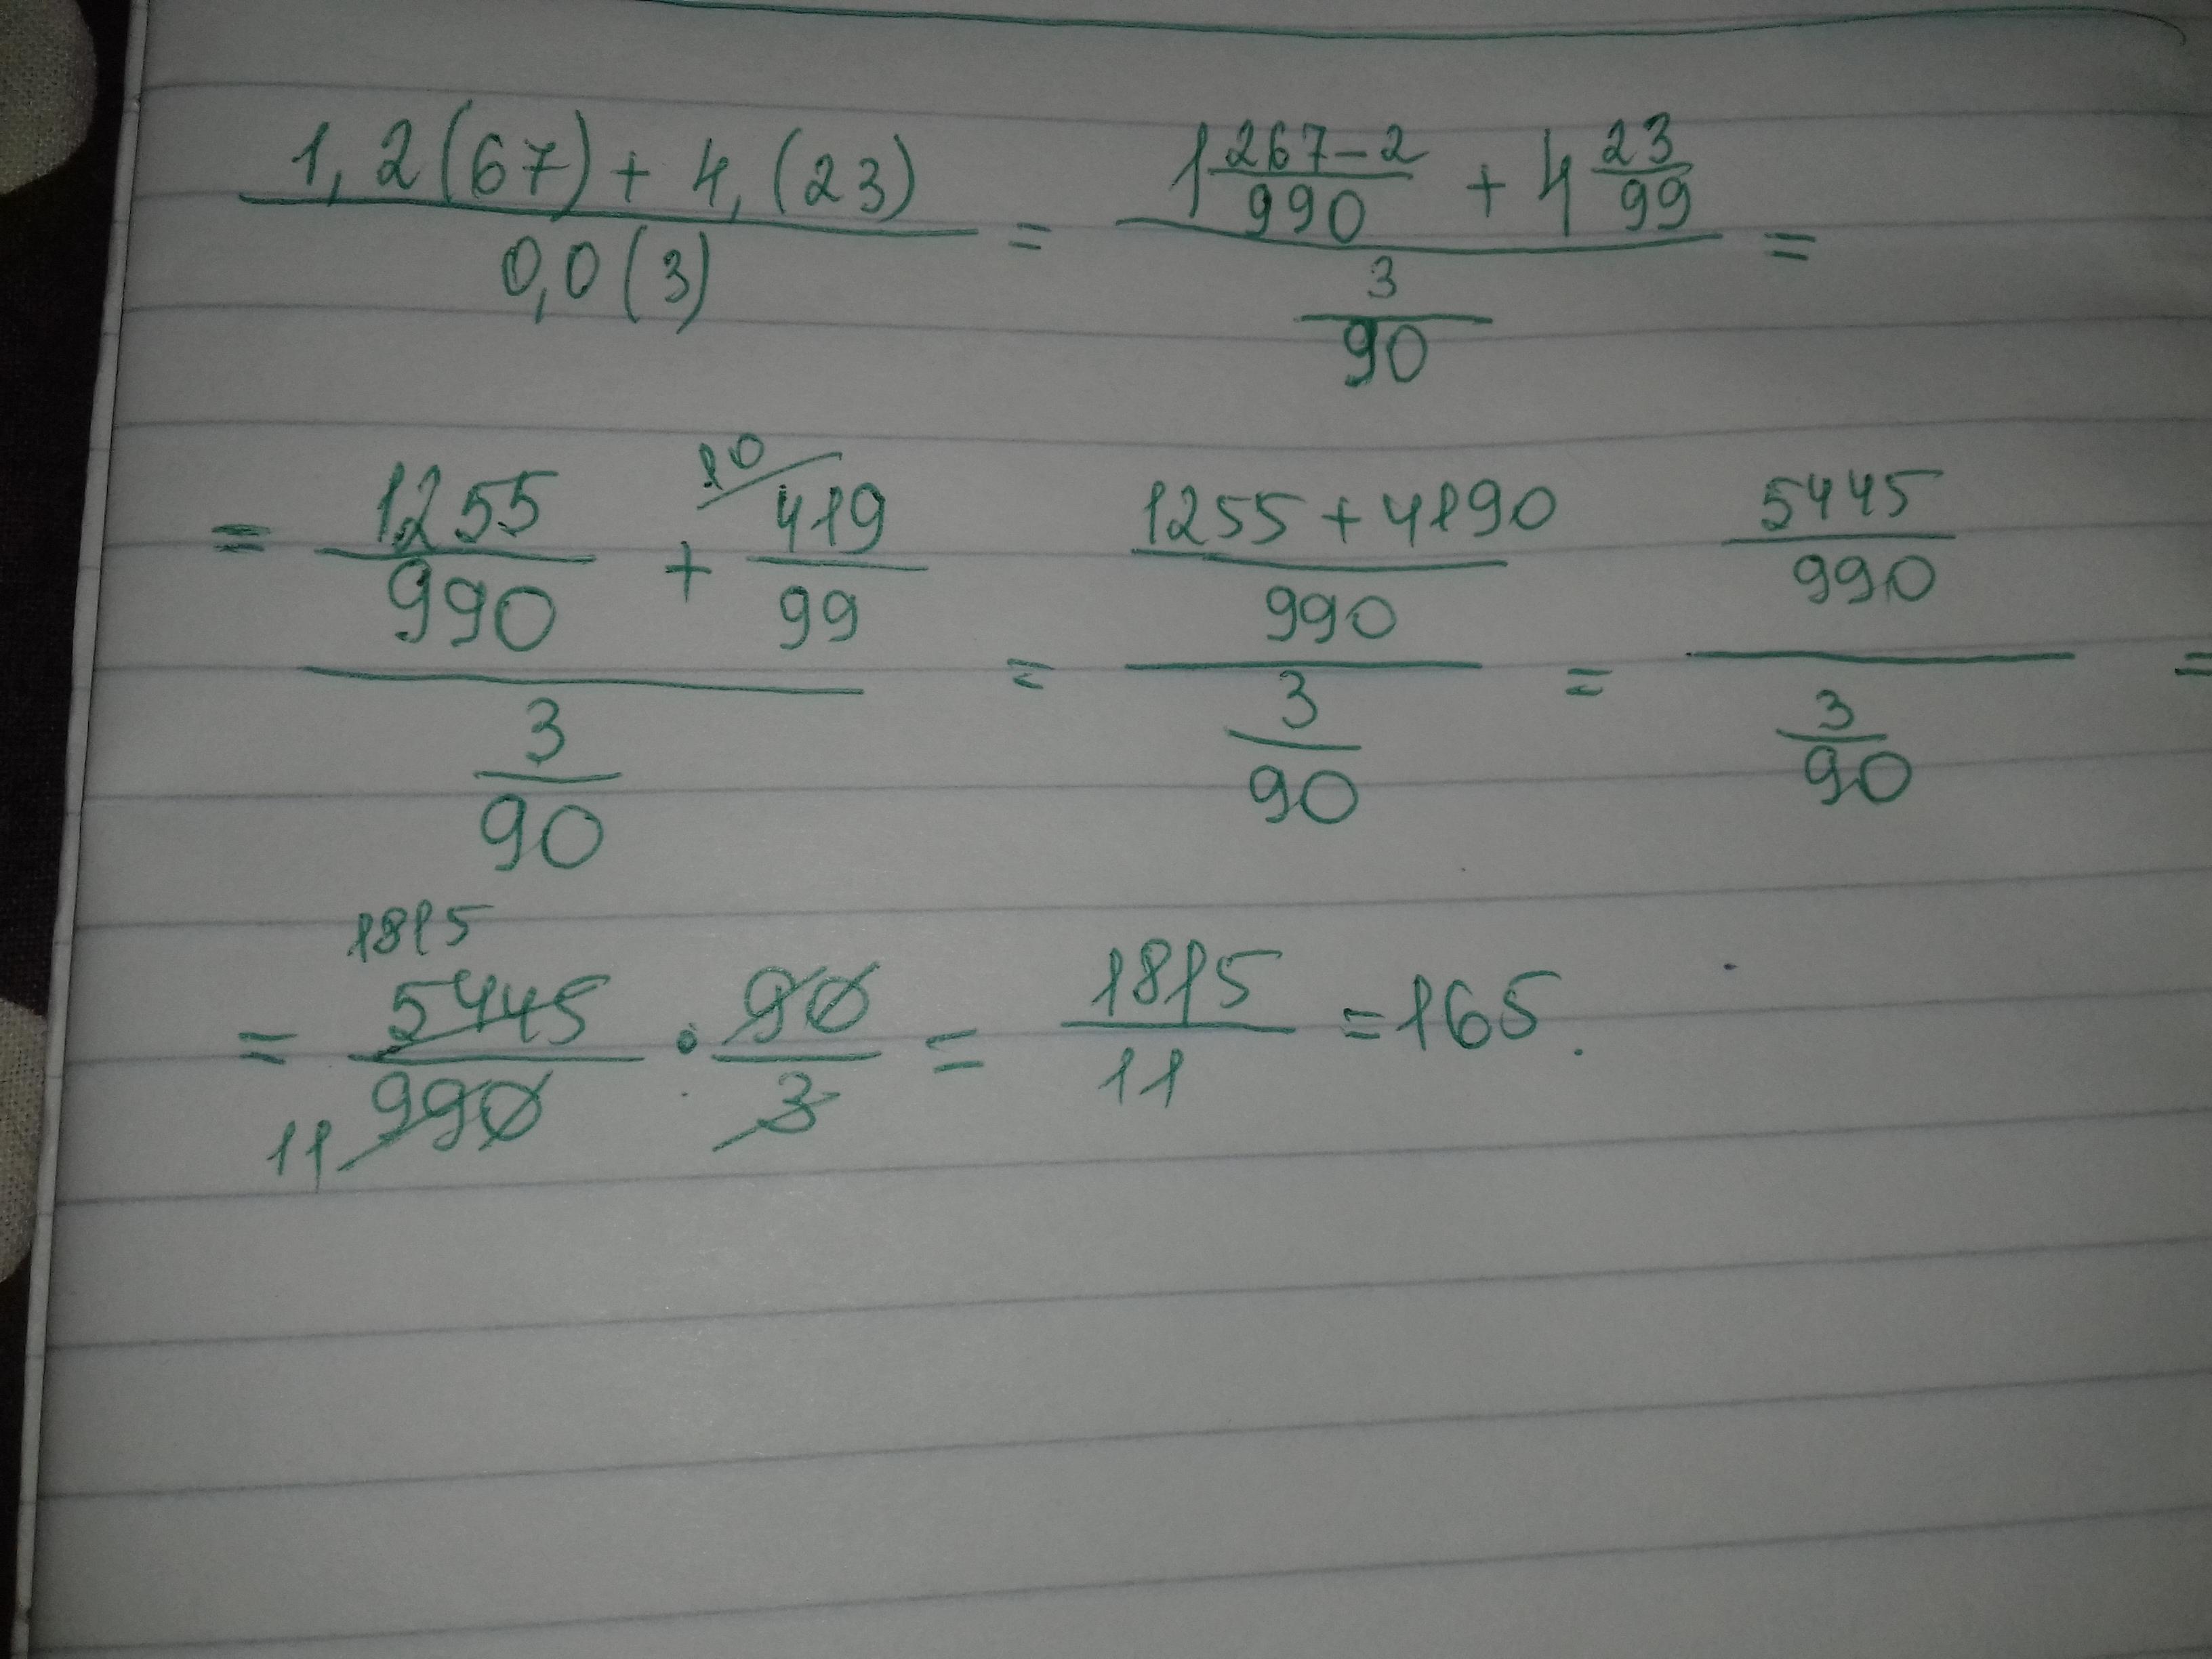 1,2(67) + 4,(23) / 0,0(3) = 1 267-2/990 + 4 23/99 / 3/90 =
= 1255/990 + 10/ 419/99 / 3/90 = 1255+4190/990 / 3/90 = 5445/990 / 3/90 =
= 1815 5445/990 11 · 90/3 = 1815/11 = 165.